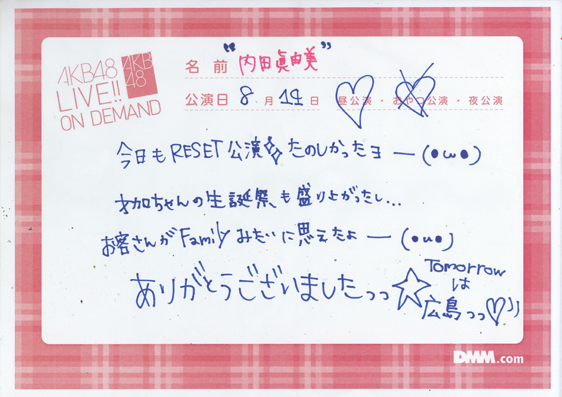 AKB48
LIVE!!
ON DEMAND
AKB
48
名前 "内田眞由美"
公演日 8 月 14 日 昼公演・おやつ公演・夜公演
今日もRESET公演たのしかったヨー(•ω•)
才加ちゃんの生誕祭も盛り上がったし...
お客さんがFamilyみたいに思えたよー(•u•)
ありがとうございましたっっ☆
Tomorrow
は
広島っっ♡))
DMM.com